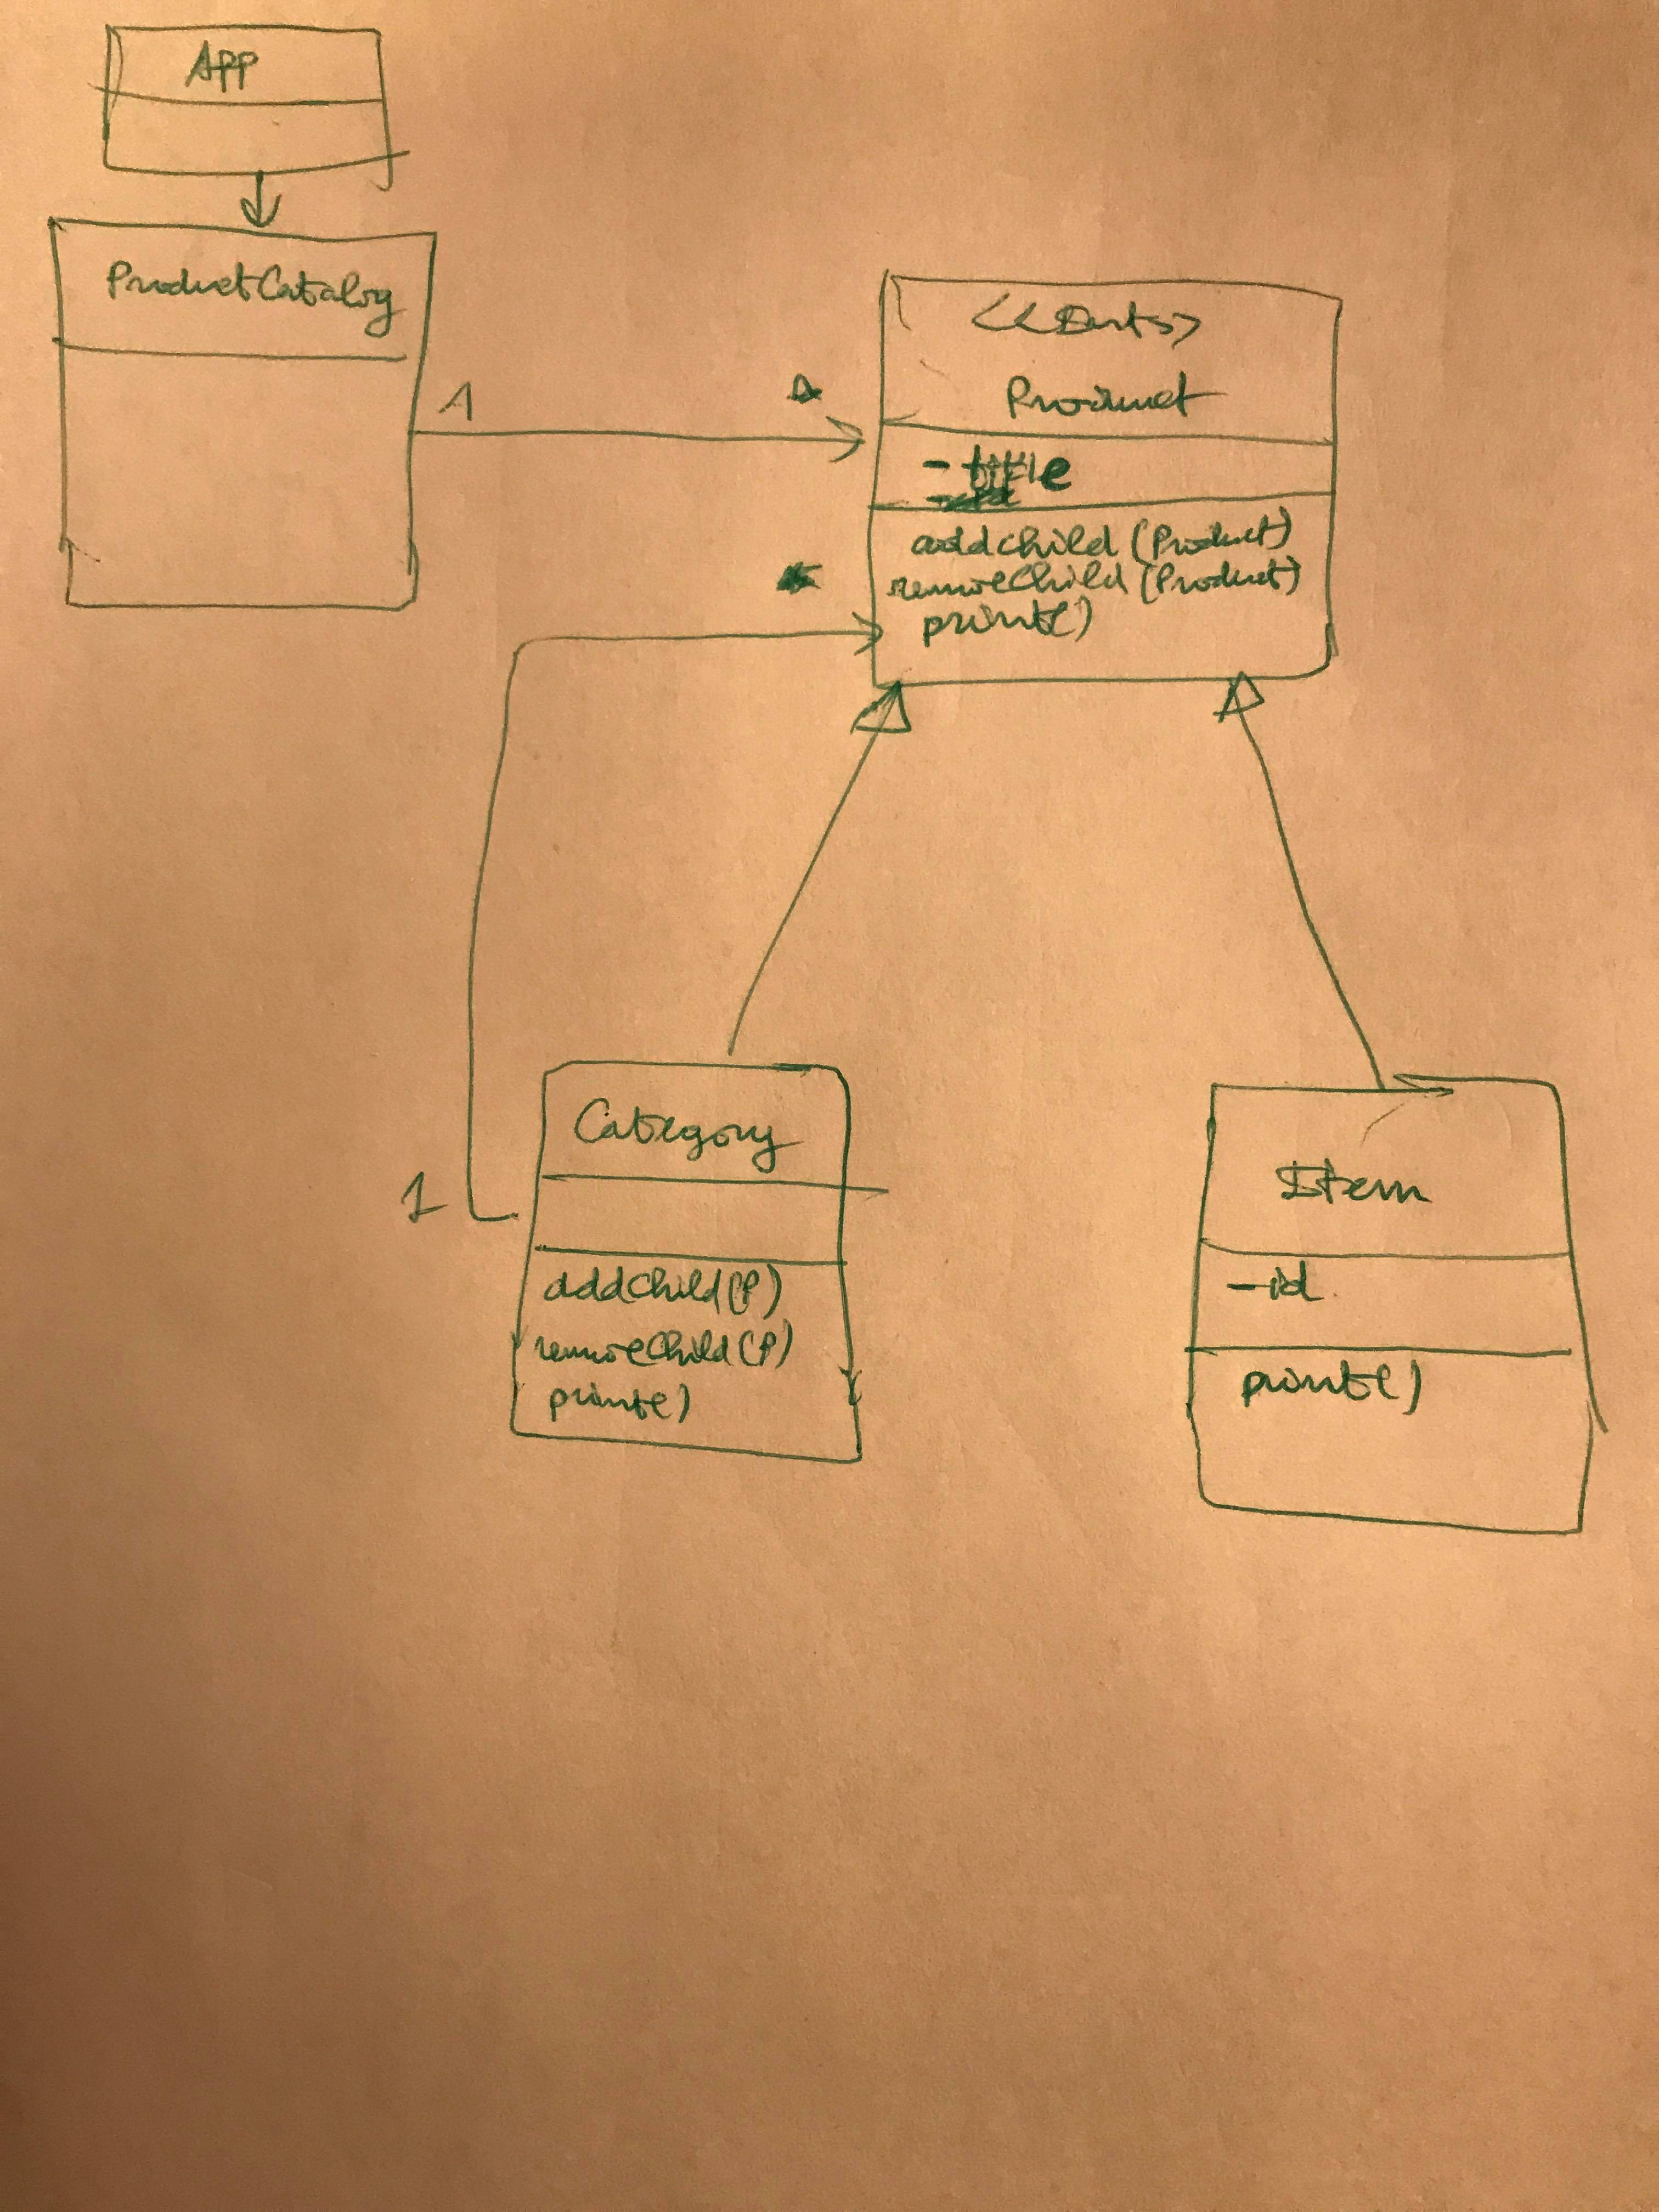 App
ProductCatalog
1
Product
- title
addchild (Product)
removeChild (Product)
print()
*
1
Category
addChild(P)
removeChild(P)
print()
Item
-id
print()